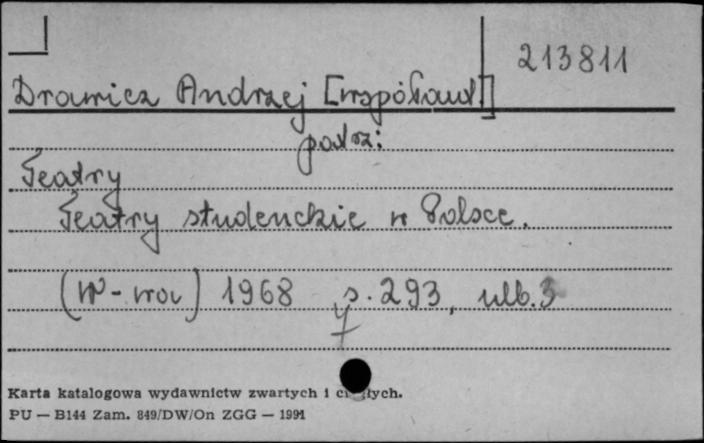 213811
Drawicz Andrzej [współaut.]
patrz:
Teatry
Teatry studenckie w Polsce.
(W-wa) 1968 s. 293, nlb. 3
Karta katalogowa wydawnictw zwartych i ciągłych.
PU — B144 Zam. 849/DW/On ZGG — 1991